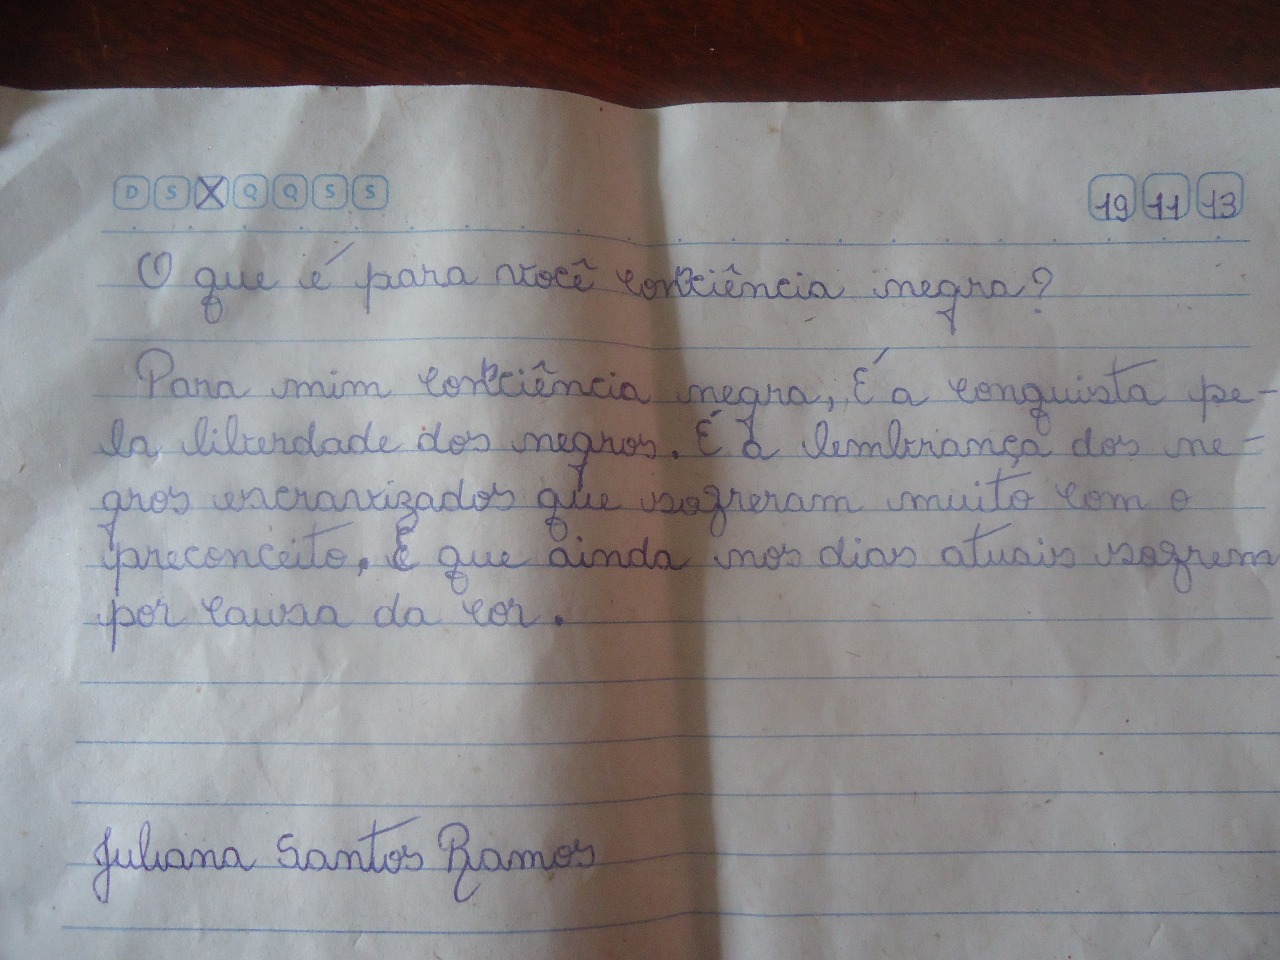 D S X Q Q S S 19 11 13
O que é para você consciência negra?
Para mim consciência negra, É a conquista pe-
la liberdade dos negros. É a lembrança dos ne-
gros escravizados que sofreram muito com o
preconceito, E que ainda nos dias atuais sofrem
por causa da cor.
Juliana Santos Ramos